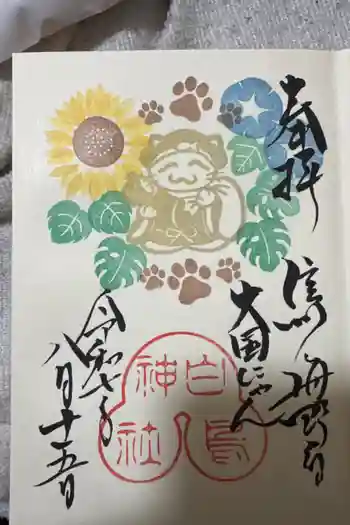 奉拝
大国にゃん
白鳥神社
令和七年
八月十五日